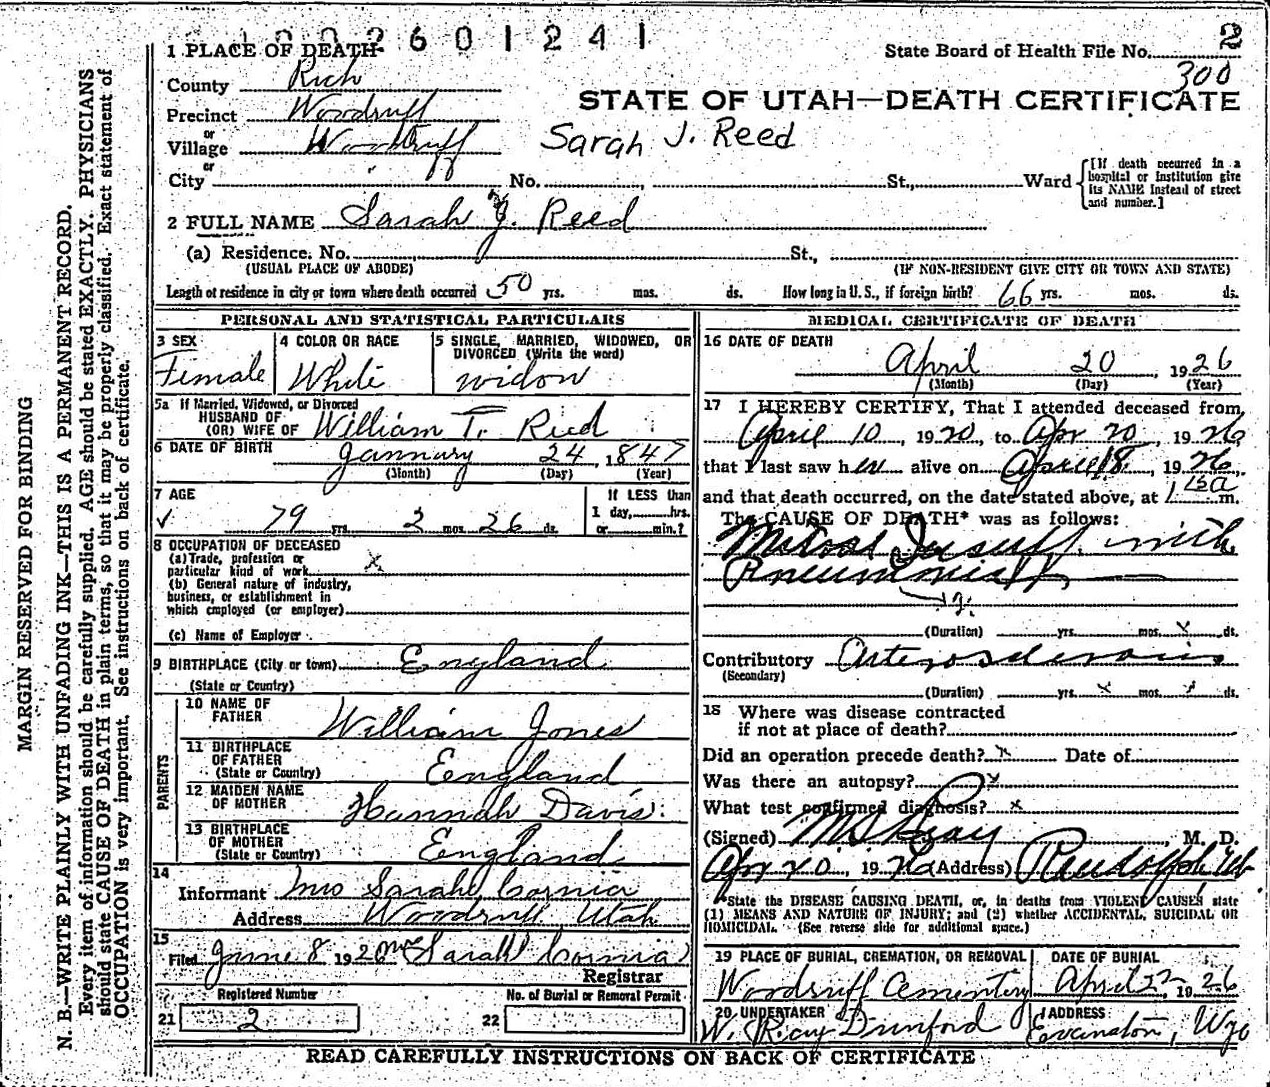 2601241
1 PLACE OF DEATH
State Board of Health File No. 2
County Rich
300
STATE OF UTAH—DEATH CERTIFICATE
Precinct Woodruff
or
Village Woodruff
Sarah J. Reed
or
City No. St., Ward
[If death occurred in a hospital or institution give its NAME instead of street and number.]
2 FULL NAME Sarah J. Reed
(a) Residence. No. St.,
(USUAL PLACE OF ABODE) (IF NON-RESIDENT GIVE CITY OR TOWN AND STATE)
Length of residence in city or town where death occurred 50 yrs. mos. ds. How long in U. S., if foreign birth? 66 yrs. mos. ds.
PERSONAL AND STATISTICAL PARTICULARS
3 SEX
Female
4 COLOR OR RACE
White
5 SINGLE, MARRIED, WIDOWED, OR
DIVORCED (Write the word)
widow
5a If Married, Widowed, or Divorced
HUSBAND OF
(OR) WIFE OF William T. Reed
6 DATE OF BIRTH January 24, 1847
(Month) (Day) (Year)
7 AGE
79 yrs. 2 mos. 26 ds.
If LESS than
1 day, hrs.
or min.?
8 OCCUPATION OF DECEASED
(a) Trade, profession or
particular kind of work x
(b) General nature of industry,
business, or establishment in
which employed (or employer)
(c) Name of Employer
9 BIRTHPLACE (City or town) England
(State or Country)
PARENTS
10 NAME OF
FATHER William Jones
11 BIRTHPLACE
OF FATHER England
(State or Country)
12 MAIDEN NAME
OF MOTHER Hannah Davis.
13 BIRTHPLACE
OF MOTHER England
(State or Country)
14
Informant Mrs Sarah Cornia
Address Woodruff Utah
15
Filed June 8 1926 Mrs Sarah Cornia
Registrar
Registered Number
21 2
No. of Burial or Removal Permit
22
MEDICAL CERTIFICATE OF DEATH
16 DATE OF DEATH
April 20, 1926
(Month) (Day) (Year)
17 I HEREBY CERTIFY, That I attended deceased from
April 10, 1920, to Apr 20, 1926
that I last saw her alive on April 18, 1926.
and that death occurred, on the date stated above, at 1 15a m.
The CAUSE OF DEATH* was as follows:
Mitral Insuff. with
Pneumonia
(Duration) yrs. mos. x ds.
Contributory Arterosclerosis
(Secondary)
(Duration) yrs. x mos. ds.
18 Where was disease contracted
if not at place of death?
Did an operation precede death? x Date of
Was there an autopsy? x
What test confirmed diagnosis? x
(Signed) M. D.
Apr 20, 1926 (Address) Randolph Ut
*State the DISEASE CAUSING DEATH, or, in deaths from VIOLENT CAUSES state
(1) MEANS AND NATURE OF INJURY; and (2) whether ACCIDENTAL, SUICIDAL OR
HOMICIDAL. (See reverse side for additional space.)
19 PLACE OF BURIAL, CREMATION, OR REMOVAL
Woodruff Cementery
DATE OF BURIAL
April 22, 1926
20 UNDERTAKER
W. Ray Dunford
ADDRESS
Evanston, Wyo
READ CAREFULLY INSTRUCTIONS ON BACK OF CERTIFICATE
MARGIN RESERVED FOR BINDING
N. B.—WRITE PLAINLY WITH UNFADING INK—THIS IS A PERMANENT RECORD.
Every item of information should be carefully supplied. AGE should be stated EXACTLY. PHYSICIANS
should state CAUSE OF DEATH in plain terms, so that it may be properly classified. Exact statement of
OCCUPATION is very important. See instructions on back of certificate.